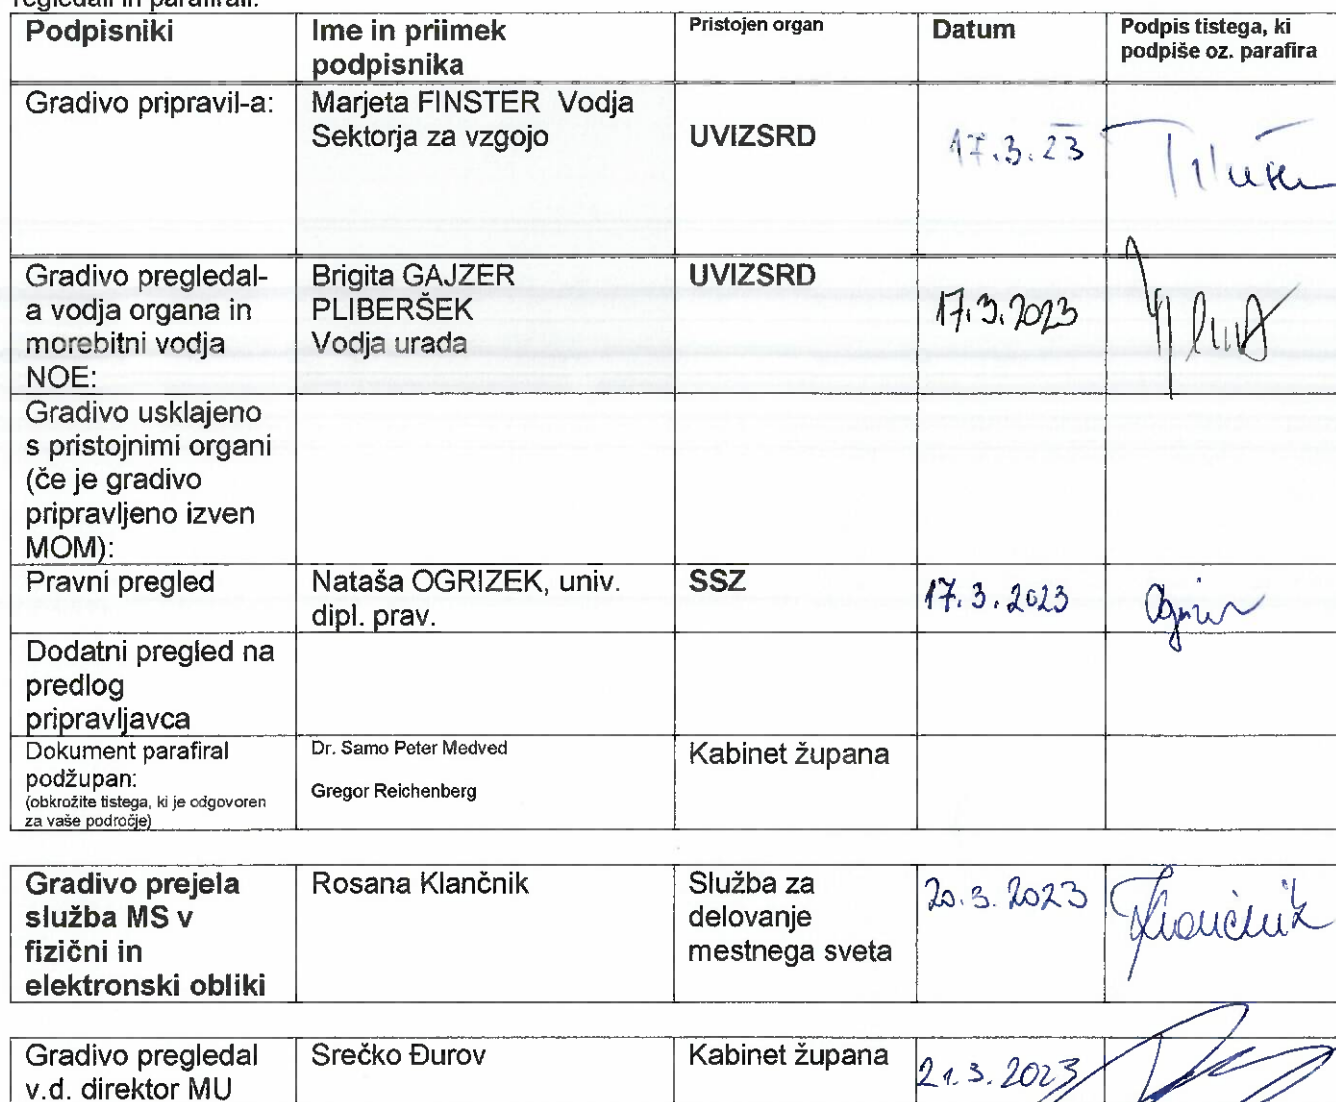 regledali in parafirali:
Podpisniki
Ime in priimek
podpisnika
Pristojen organ
Datum
Podpis tistega, ki
podpiše oz. parafira
Gradivo pripravil-a:
Marjeta FINSTER Vodja
Sektorja za vzgojo
UVIZSRD
17.3.23
Gradivo pregledal-
a vodja organa in
morebitni vodja
NOE:
Brigita GAJZER
PLIBERŠEK
Vodja urada
UVIZSRD
17.3.2023
Gradivo usklajeno
s pristojnimi organi
(če je gradivo
pripravljeno izven
MOM):
Pravni pregled
Nataša OGRIZEK, univ.
dipl. prav.
SSZ
17.3.2023
Dodatni pregled na
predlog
pripravljavca
Dokument parafiral
podžupan:
(obkrožite tistega, ki je odgovoren
za vaše področje)
Dr. Samo Peter Medved
Gregor Reichenberg
Kabinet župana
Gradivo prejela
služba MS v
fizični in
elektronski obliki
Rosana Klančnik
Služba za
delovanje
mestnega sveta
20.3.2023
Gradivo pregledal
v.d. direktor MU
Srečko Đurov
Kabinet župana
21.3.2023